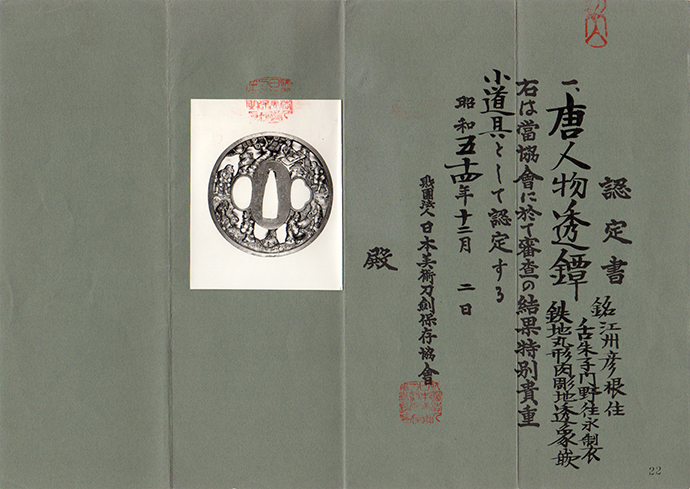 認定書
一、唐人物透鐔
銘 江州彦根住
舌朱子門野住永製
鉄地丸形肉彫地透象嵌
右は當協會に於て審査の結果特別貴重
小道具として認定する
昭和五十四年十二月二日
財團法人日本美術刀劍保存協會
殿
22